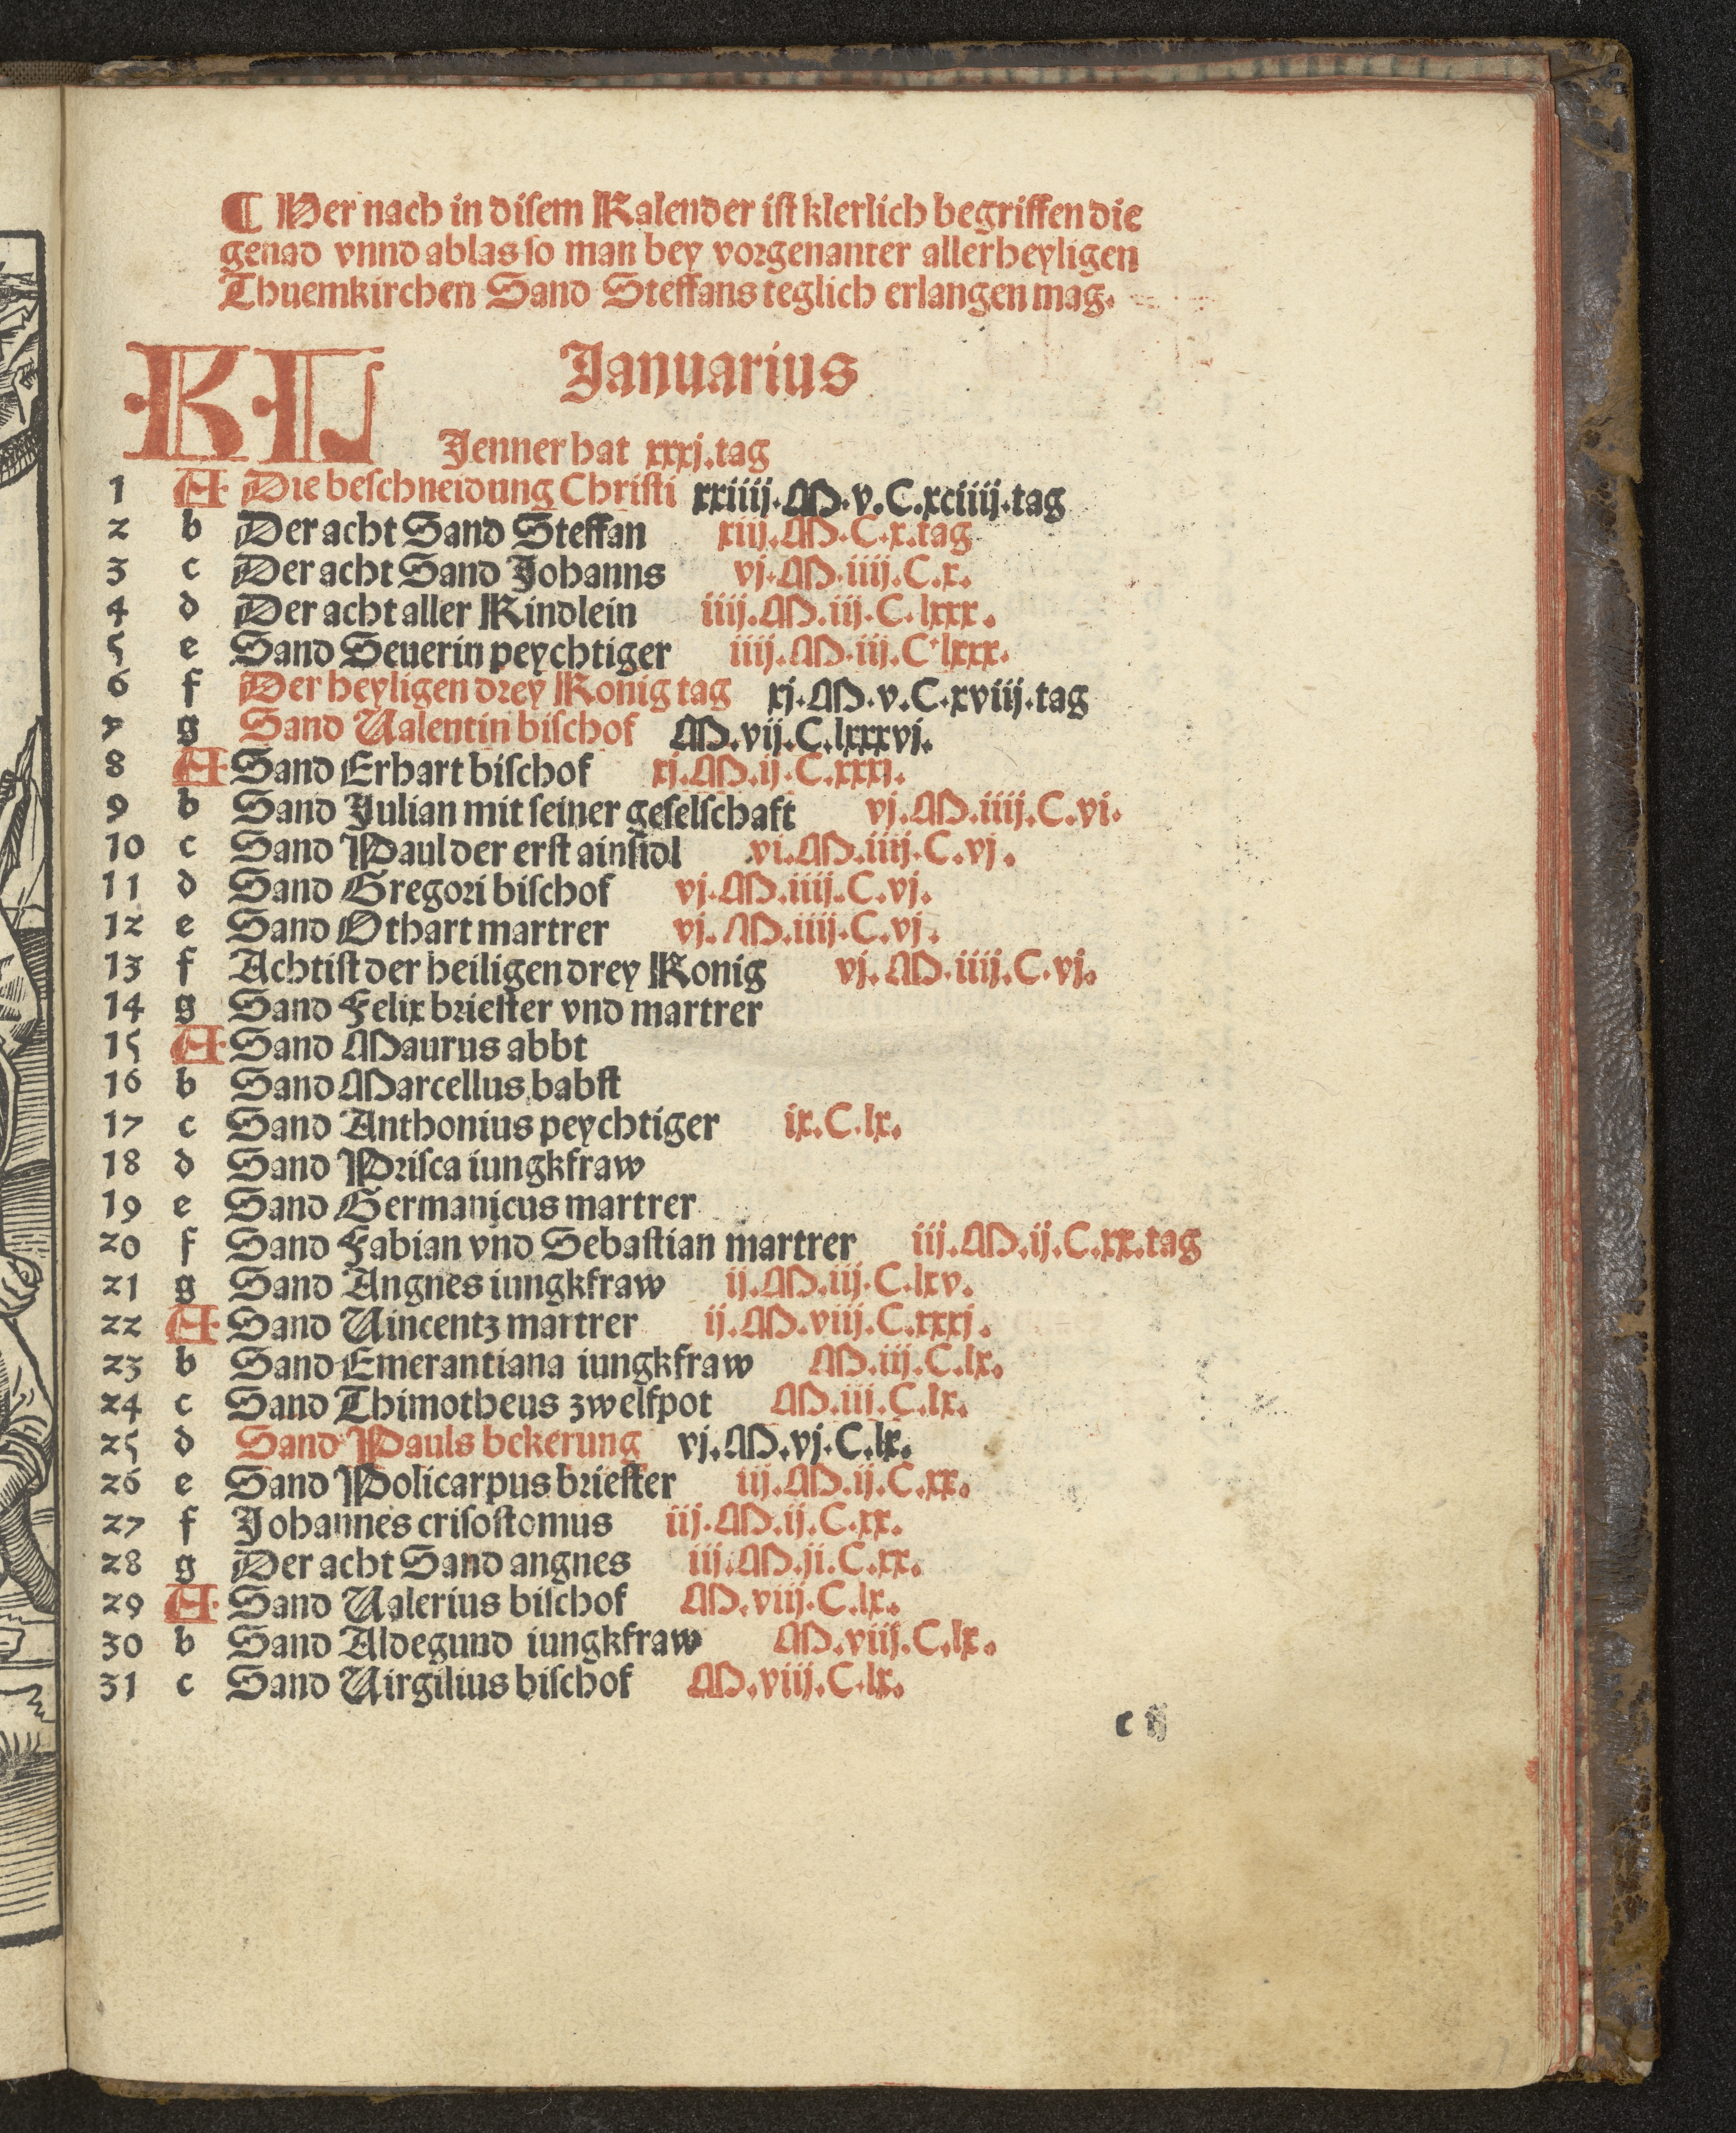 ¶ Her nach in disem Kalender ist klerlich begriffen die
genad vnnd ablas so man bey vorgenanter allerheyligen
Thuemkirchen Sand Steffans teglich erlangen mag.
KL Januarius
Jenner hat xxxj.tag
1 A Die beschneidung Christi xxiiij.M.v.C.xciiij.tag
2 b Der acht Sand Steffan xiij.M.C.x.tag
3 c Der acht Sand Johanns vj.M.iiij.C.x.
4 d Der acht aller Kindlein iiij.M.iij.C.lxxx.
5 e Sand Seuerin peychtiger iiij.M.iij.C.lxxx.
6 f Der heyligen drey Konig tag xj.M.v.C.xviij.tag
7 g Sand Ualentin bischof M.vij.C.lxxxvj.
8 A Sand Erhart bischof xj.M.ij.C.xxxj.
9 b Sand Julian mit seiner geselschaft vj.M.iiij.C.vi.
10 c Sand Paul der erst ainsidl vi.M.iiij.C.vj.
11 d Sand Gregori bischof vj.M.iiij.C.vj.
12 e Sand Othart martrer vj.M.iiij.C.vj.
13 f Achtist der heiligen drey Konig vj.M.iiij.C.vj.
14 g Sand Felix briester vnd martrer
15 A Sand Maurus abbt
16 b Sand Marcellus babst
17 c Sand Anthonius peychtiger ix.C.lx.
18 d Sand Prisca iungkfraw
19 e Sand Germanicus martrer
20 f Sand Fabian vnd Sebastian martrer iij.M.ij.C.xx.tag
21 g Sand Angnes iungkfraw ij.M.iij.C.lxv.
22 A Sand Uincentz martrer ij.M.viij.C.xxxj.
23 b Sand Emerantiana iungkfraw M.iij.C.lx.
24 c Sand Thimotheus zwelfpot M.iij.C.lx.
25 d Sand Pauls bekerung vj.M.vj.C.lx.
26 e Sand Policarpus briester iij.M.ij.C.xx.
27 f Johannes crisostomus iij.M.ij.C.xx.
28 g Der acht Sand angnes iij.M.ji.C.xx.
29 A Sand Ualerius bischof M.viij.C.lx.
30 b Sand Aldegund iungkfraw M.viij.C.lx.
31 c Sand Uirgilius bischof M.viij.C.lx.
c ij